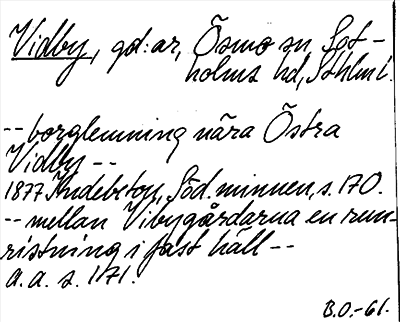 Vidby, gd:ar, Ösmo sn, Sot-
holms hd, Sthlm l.
-- borglemning nära Östra
Vidby --
1877 Indebetou, Söd. minnen, s. 170.
-- mellan Vibygårdarna en run-
ristning i fast häll --
a. a. s. 171.
B.O.-61.